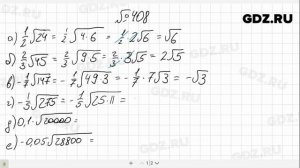 GDZ.RU
№ 408
а) 1/2 √24 = 1/2 √4·6 = 1/2 · 2√6 = √6
б) 2/3 √45 = 2/3 √9·5 = 2/3 · 3√5 = 2√5
в) -1/7 √147 = -1/7 √49·3 = -1/7 · 7√3 = -√3
г) -1/5 √275 = -1/5 √25·11 =
д) 0,1·√20000 =
е) -0,05√28800 =
GDZ.RU